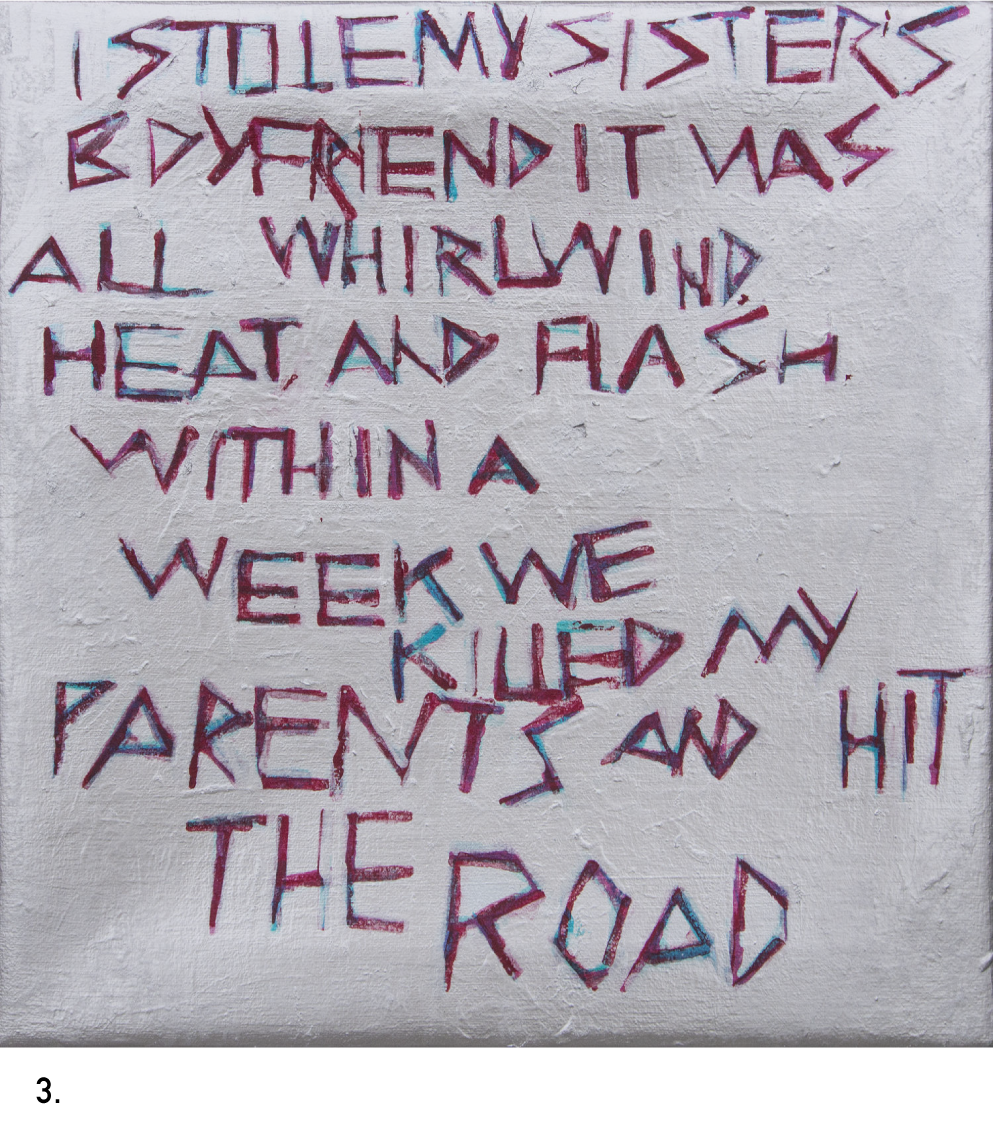 I STOLE MY SISTER'S
BOYFRIEND IT WAS
ALL WHIRLWIND,
HEAT, AND FLASH.
WITHIN A
WEEK WE
KILLED MY
PARENTS AND HIT
THE ROAD
3.